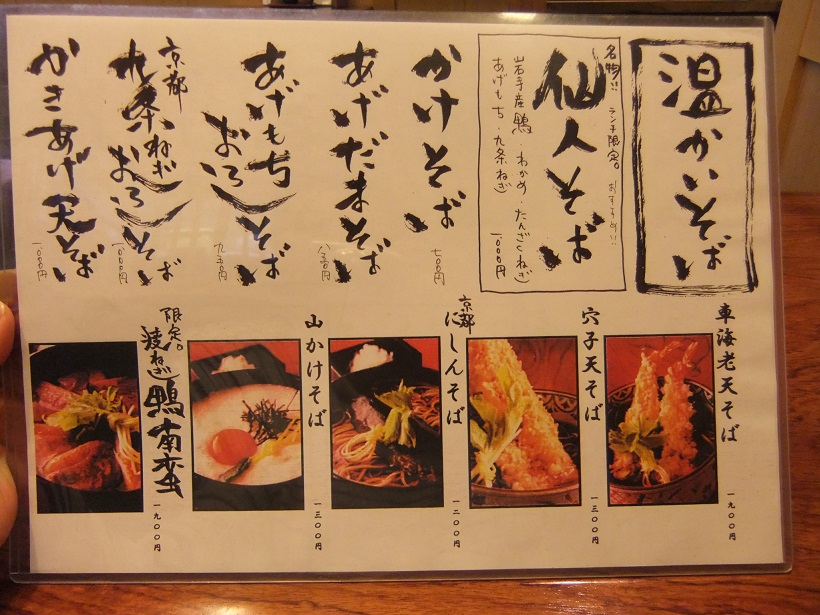 温かいそば
名物!! ランチ限定。おすすめ!!
仙人そば
岩手産鴨・わかめ・たんざくねぎ
あげもち・九条ねぎ
一、000円
かけそば
七00円
あげだまそば
八五0円
あげもち
おろしそば
九五0円
京都
九条ねぎ
おろしそば
一、000円
かきあげ天そば
一、000円
車海老天そば
一九00円
穴子天そば
一三00円
京都
にしんそば
一二00円
山かけそば
一三00円
限定。
鴨南蛮
一九00円